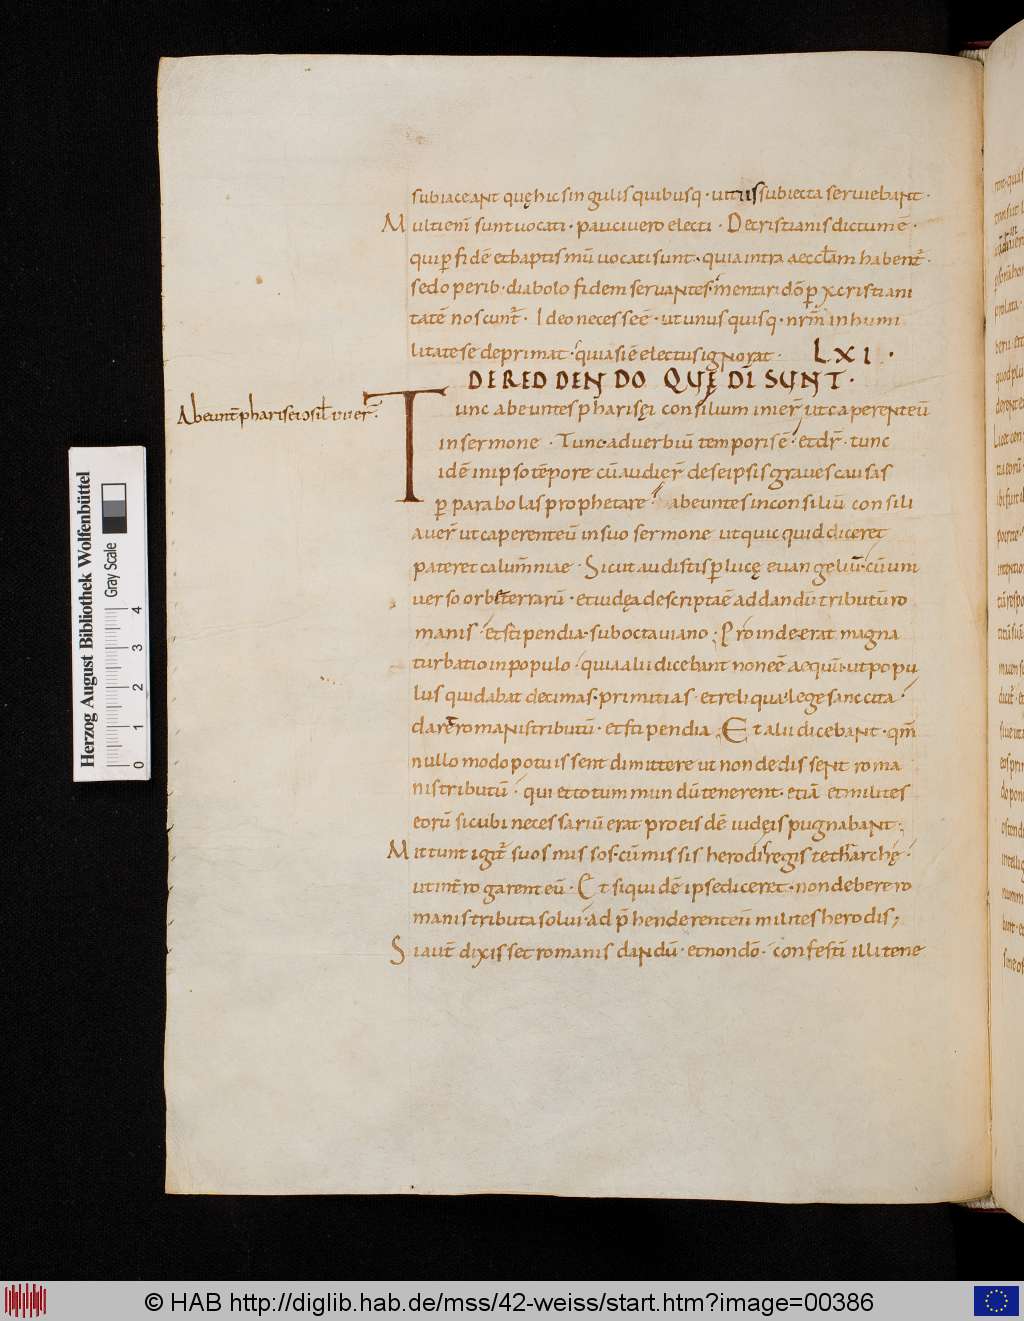 subiaceant quę hic singulis quibusq· uitiis subiecta seruiebant·
Multi enī sunt uocati· pauci uero electi· De cristianis dictum ē·
qui ꝑ fidē et baptismū uocati sunt· quia intra aeccl̄am habent̄·
sed operib· diabolo fidem seruantes· mentiri dō ꝑ xcristiani
tatē noscunt̄· Ideo necesse ē· ut unus quisq· nr̄m in humi
litate se deprimat· quia si ē electus ignorat· LXI·
DE REDDENDO QUĘ DĪ SUNT·
Abeunt̄ pharisei osil̄ iner̄
Tunc abeuntes pharisęi consilium inier̄ ut caperent eū
in sermone· Tunc· aduerbiū temporis ē· et dr̄· tunc
idē in ipso tēpore cū audier̄ de se ipsis graues causas
ꝑ parabolas prophetare· abeuntes in consiliū consili
auer̄ ut caperent eū in suo sermone ut quicquid diceret
pateret calum̄niae· Sicut audistis ꝑ lucę euangeliū· cū uni
uerso orbe terrarū· et iudęa descripta ē ad dandū tributū ro
manis· et stipendia· sub octauiano; Proinde· erat magna
turbatio in populo· quia alii dicebant non eē aequū· ut popu
lus qui dabat decimas· primitias· et reliqua· lege sanccita·
dare romanis tributū· et stipendia. Et alii dicebant· qm̄
nullo modo potuissent dimittere ut non dedissent roma
nis tributū· qui et totum mundū tenerent· etiā et milites
eorū sicubi necessariū erat pro eis dē iudęis pugnabant;
Mittunt igit̄ suos missos· cū missis herodis regis tetharchę·
ut int̄rogarent eū· Et siquidē ipse diceret· non debere ro
manis tributa solui· ad p̄hendere eū milites herodis;
Si aut̄ dixisset romanis dandū· et non dō· confestī illi tene
Herzog August Bibliothek Wolfenbüttel
Gray Scale
0 1 2 3 4
© HAB http://diglib.hab.de/mss/42-weiss/start.htm?image=00386